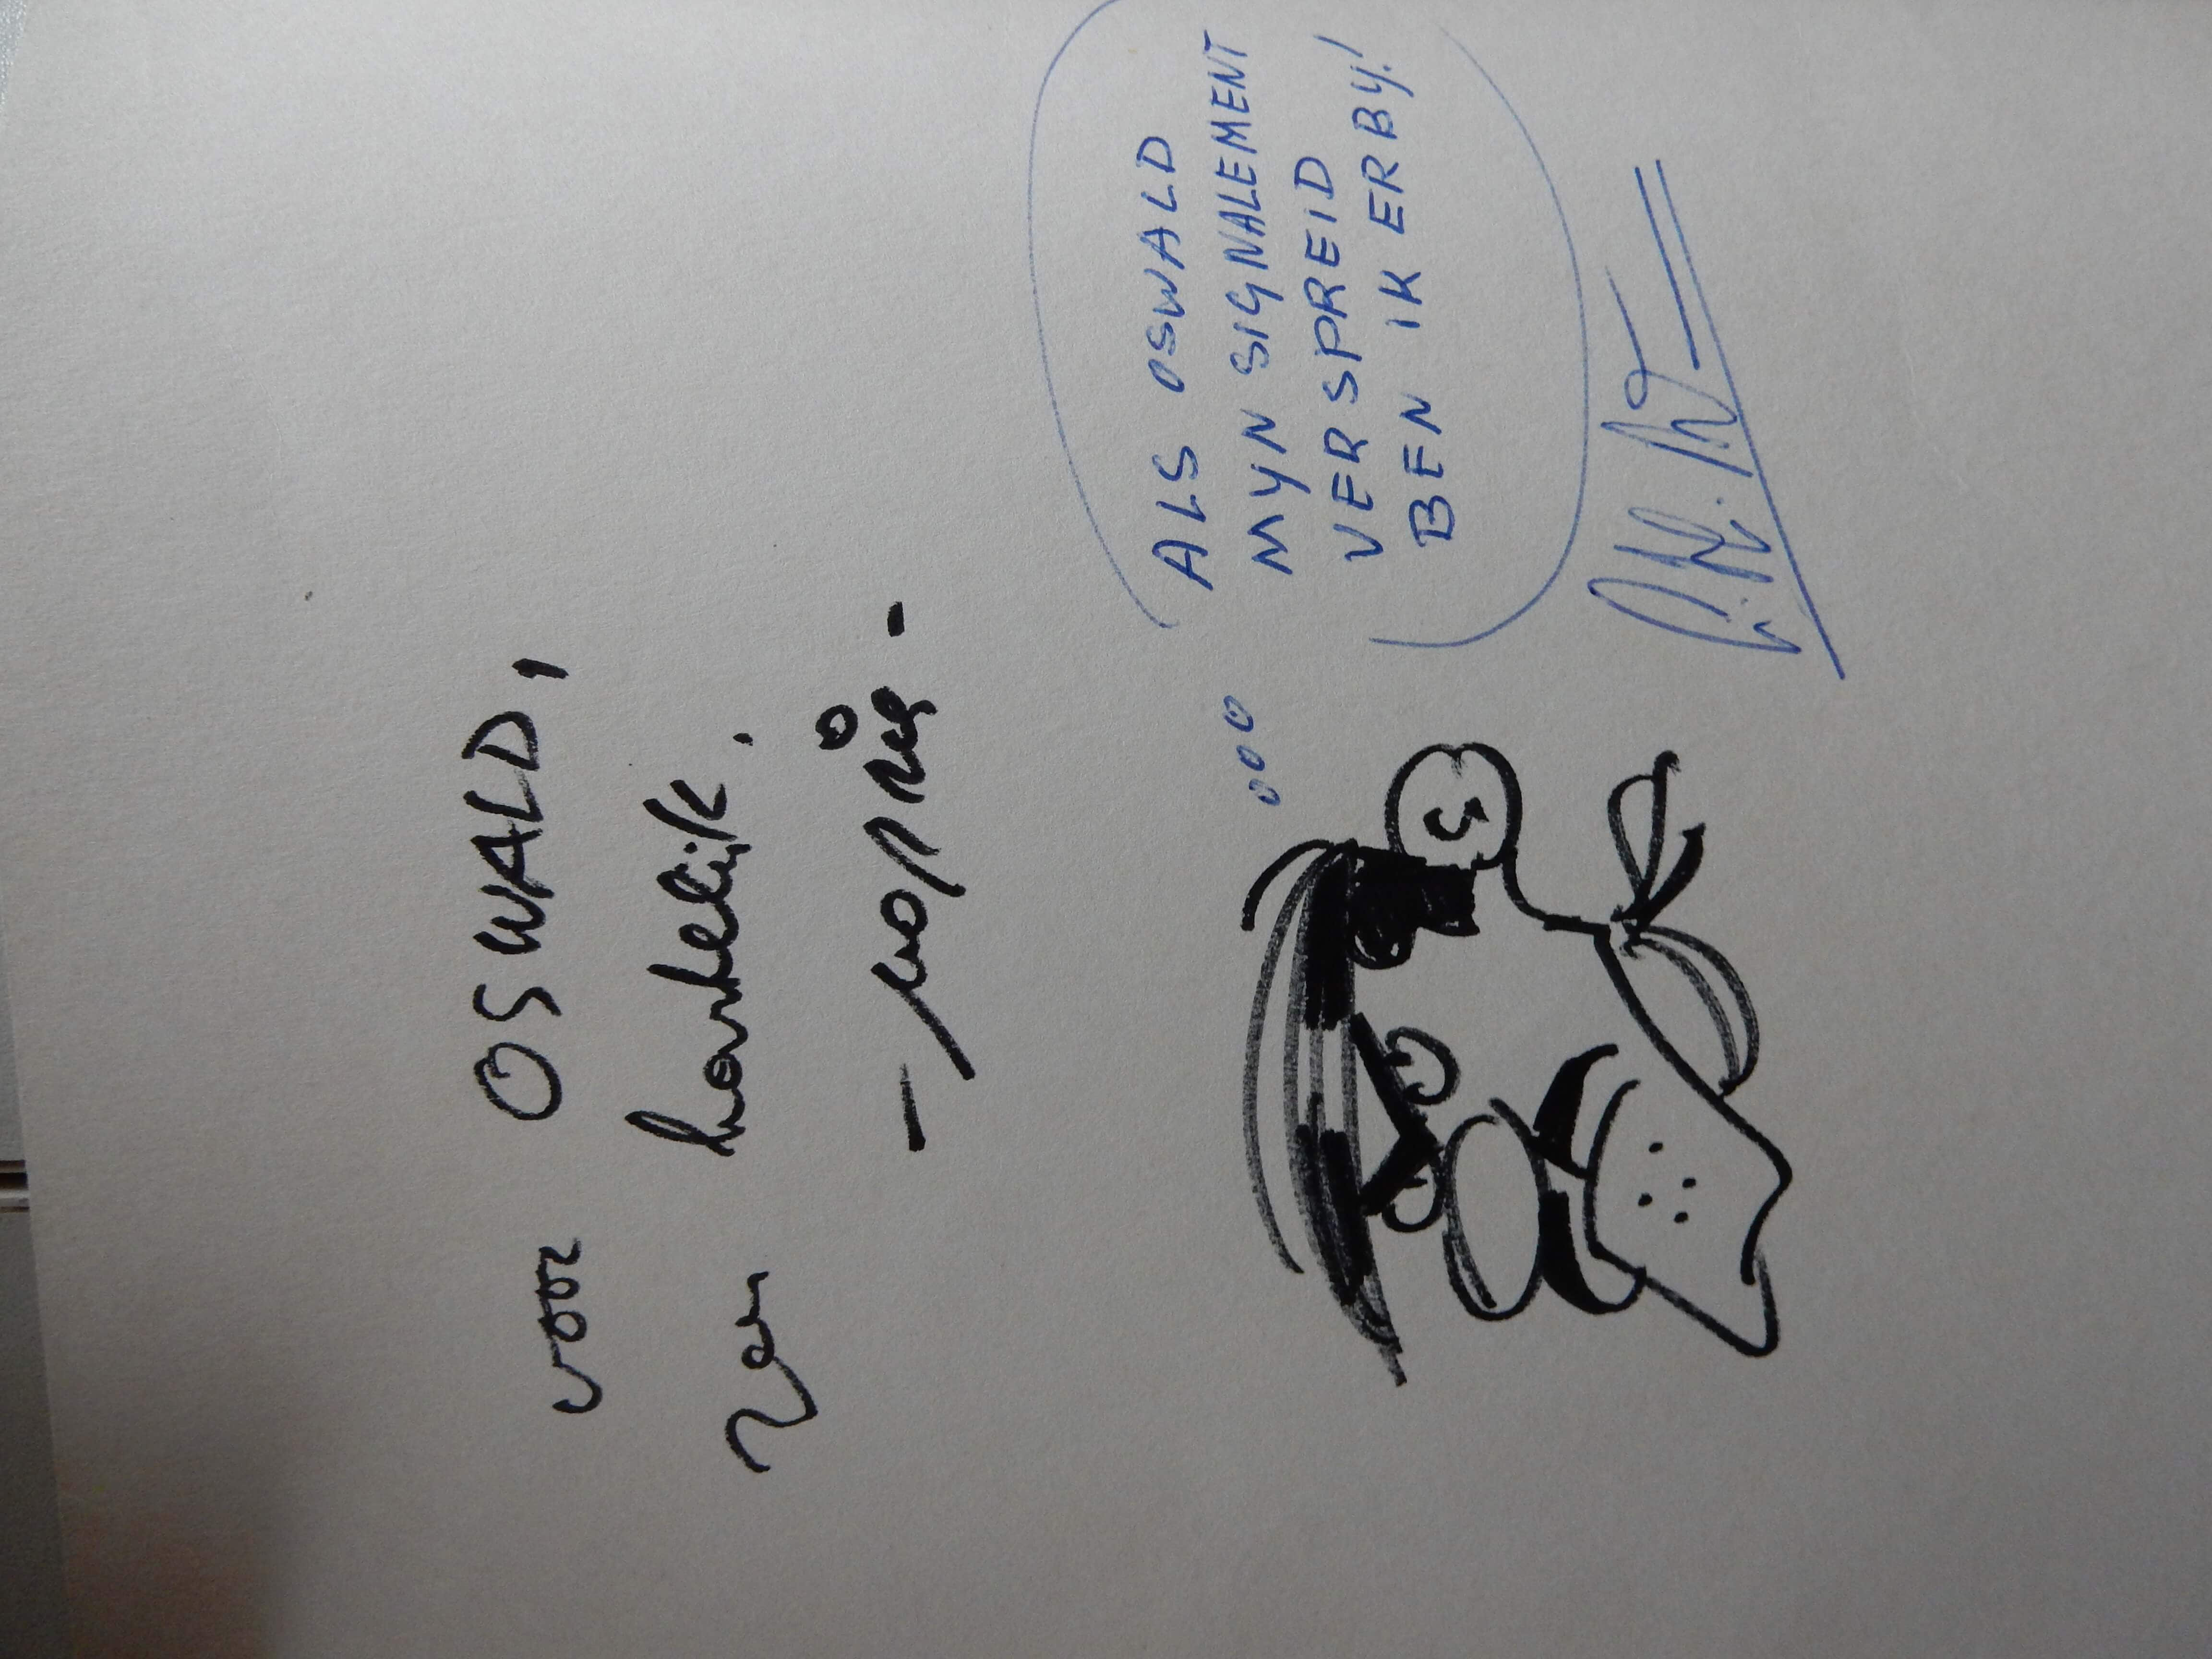 voor OSWALD,
zeer hartelijk.
ALS OSWALD
MYN SIGNALEMENT
VERSPREID
BEN IK ERBY!